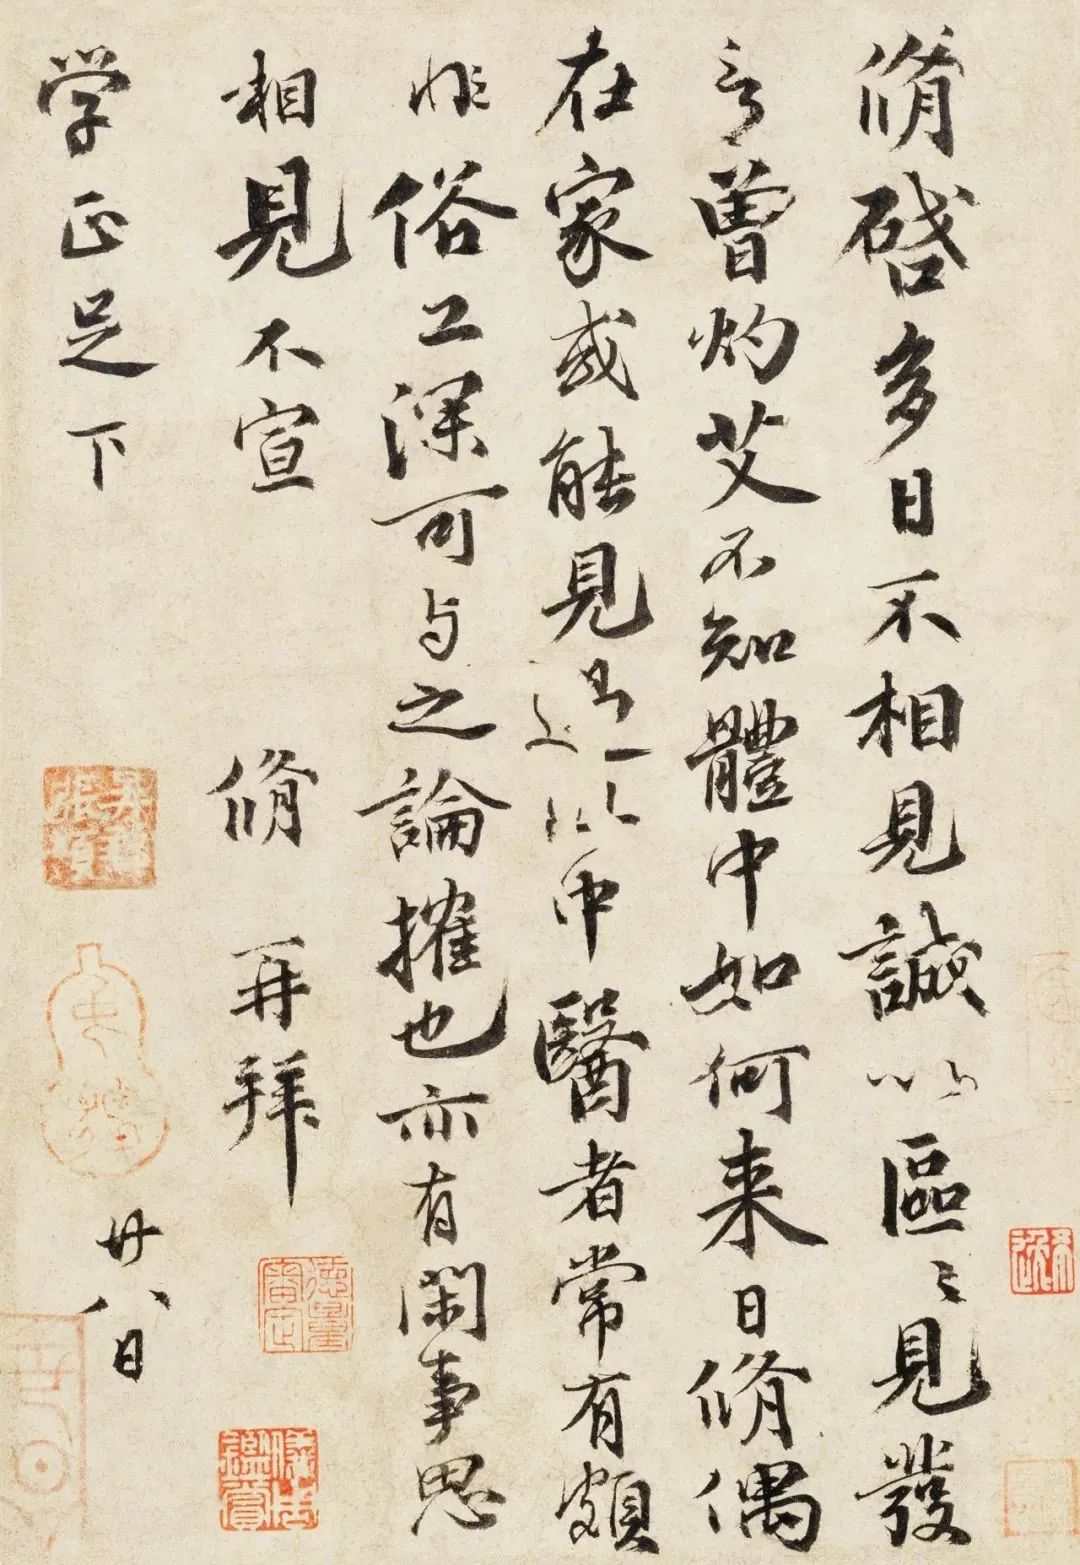 脩啓多日不相見誠以區〻見發
言曾灼艾不知體中如何来日脩偶
在家或能見過此中醫者常有頗
非俗工深可与之論搉也亦有閑事思
相見不宣 脩再拜
学正足下
廿八日
德量審定
儀周鑑賞